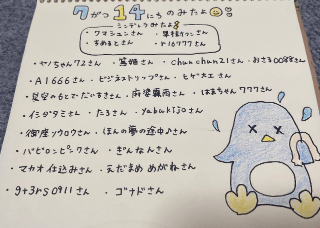 7がつ14にちのみたよ
シンデレラみたよ
・クマシュンさん ・果糖カンさん
・ちぬるとさん ・r16777さん
・やんちゃん72さん ・篤姫さん ・chunchun21さん ・おさる0088さん
・A1666さん ・ビジネストリップさん ・ヒゲ大王さん
・星空のもとでだいきさん ・麻婆 さん ・はまちゃん777さん
・イシダタミさん ・たろさん ・yabukijoさん
・御座ソウロウさん ・ほんの夢の途中♪さん
・バビロンピンクさん ・ぎんなんさん
・マカオ仕込みさん ・えだまめ めがねさん
・gt3rs0911さん ・ゴナドさん